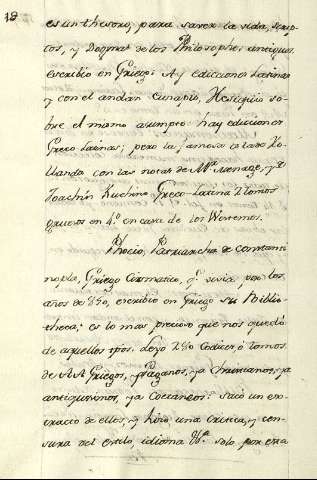 18
es un thesoro, para saver la vida, scrip-
tos, y Dogmas de los Philosophos antiguos
escribio en Griego: Ay ediciones latinas
y con el andan Eunapio, Hesiquio so-
bre el mismo asumpto hay ediciones
Greco latinas; pero la famosa es la de Ho-
llanda con las notas de Mr. Menage, y de
Joachin Kuchino Greco-latina 2 tomos
gruesos en 4.º en casa de los Westenos.
Phocio, Patriarcha de Constanti-
nopla, Griego Cismatico, q.e vivia por los
años de 850, escribio en Griego su Biblio-
theca; es lo mas precioso que nos quedó
de aquellos tpos. Leyo 280 Codices, ó tomos
de AA Griegos, y Paganos, ya Christianos, ya
antiquisimos, ya Coetaneos: sacó un ex-
tracto de ellos, y hizo una critica, y cen-
sura del estilo, idioma &.ª solo por esta